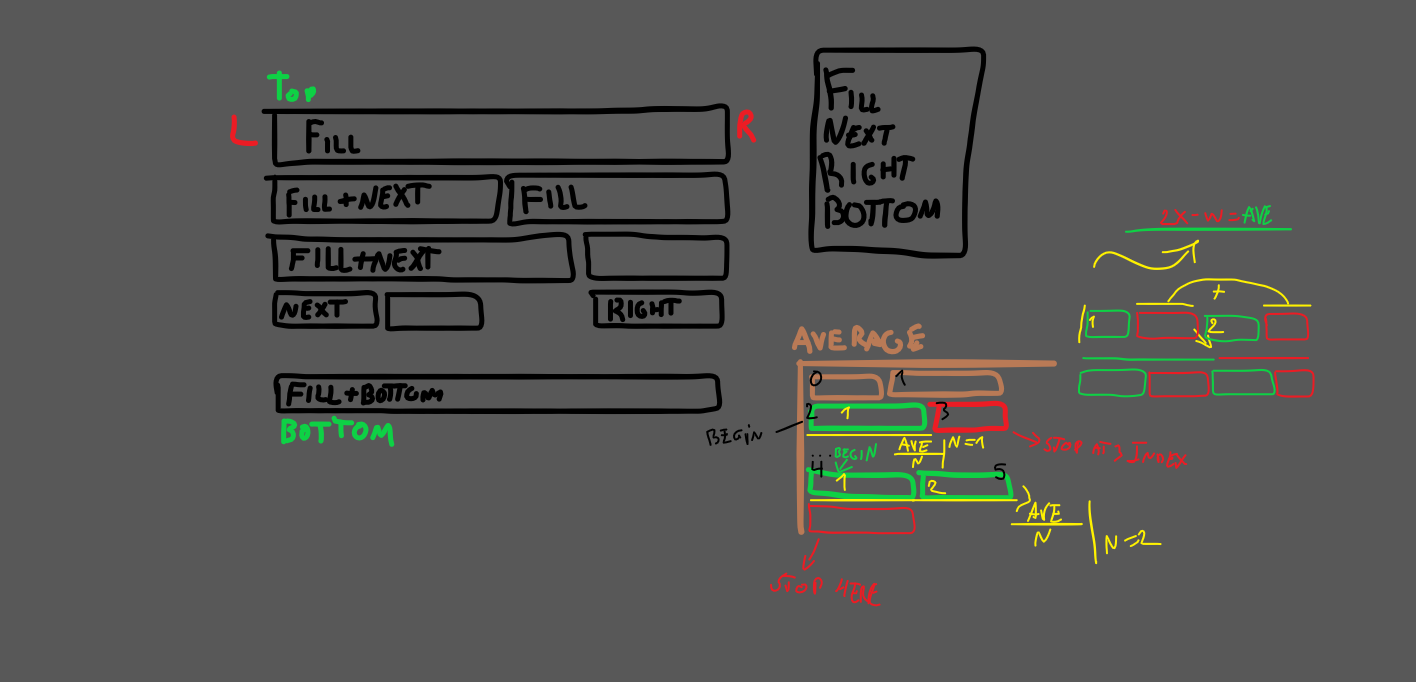 TOP
L
R
FILL
FILL+NEXT
FILL
FILL+NEXT
NEXT
RIGHT
FILL+BOTTOM
BOTTOM
FILL
NEXT
RIGHT
BOTTOM
2X-W=AVE
+
1
2
AVERAGE
0
1
2
1
3
BEGIN
AVE
N
N=1
STOP AT 3 INDEX
...BEGIN
4
1
2
5
AVE
N
N=2
STOP HERE